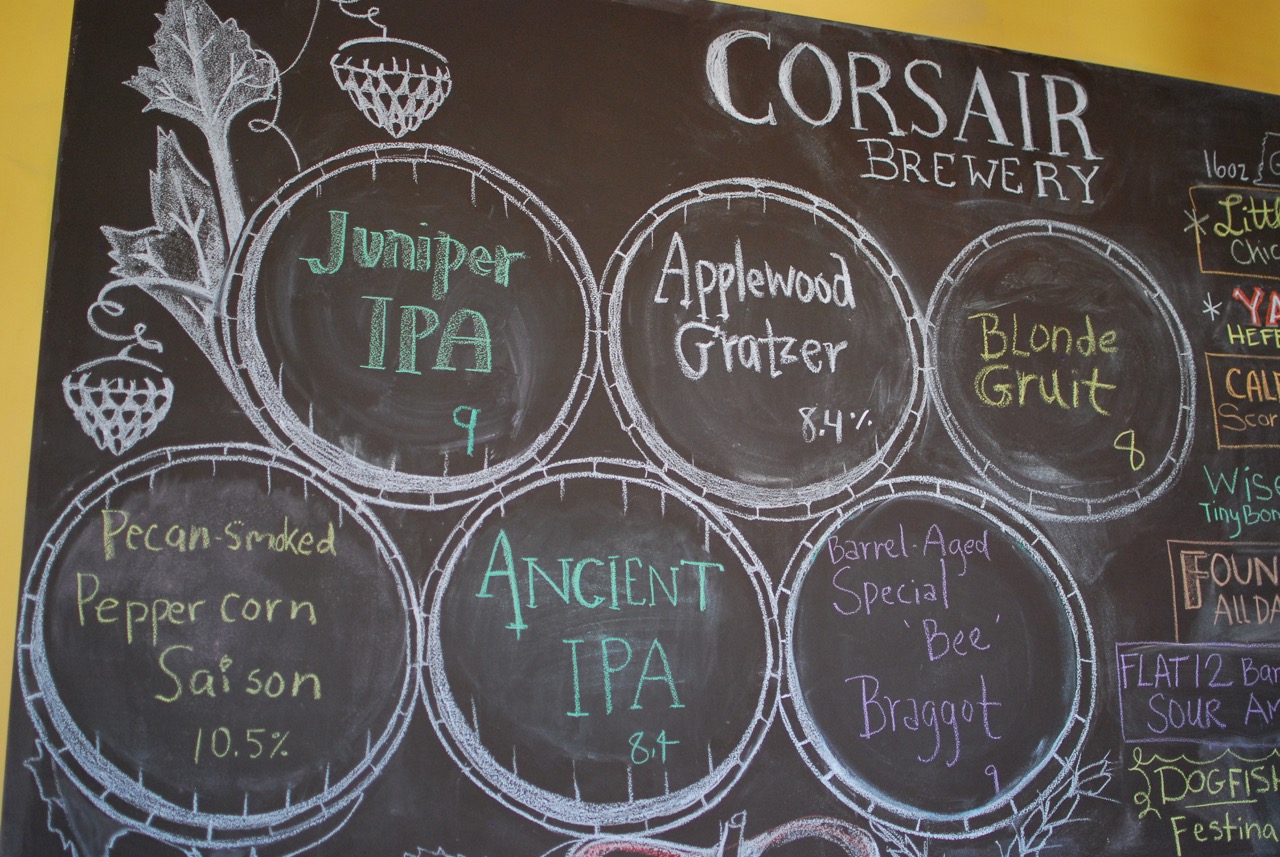 CORSAIR
BREWERY
Juniper
IPA
9
Applewood
Gratzer
8.4%
BLonde
Gruit
8
Pecan-Smoked
Peppercorn
Saison
10.5%
ANCIENT
IPA
8.4
Barrel-Aged
Special
'Bee'
Braggot
9
16oz
YA
HEFE
WISE
Tiny Bom
FOUN
ALL DA
FLAT12 Bar
SOUR AM
DOGFISH
Festina